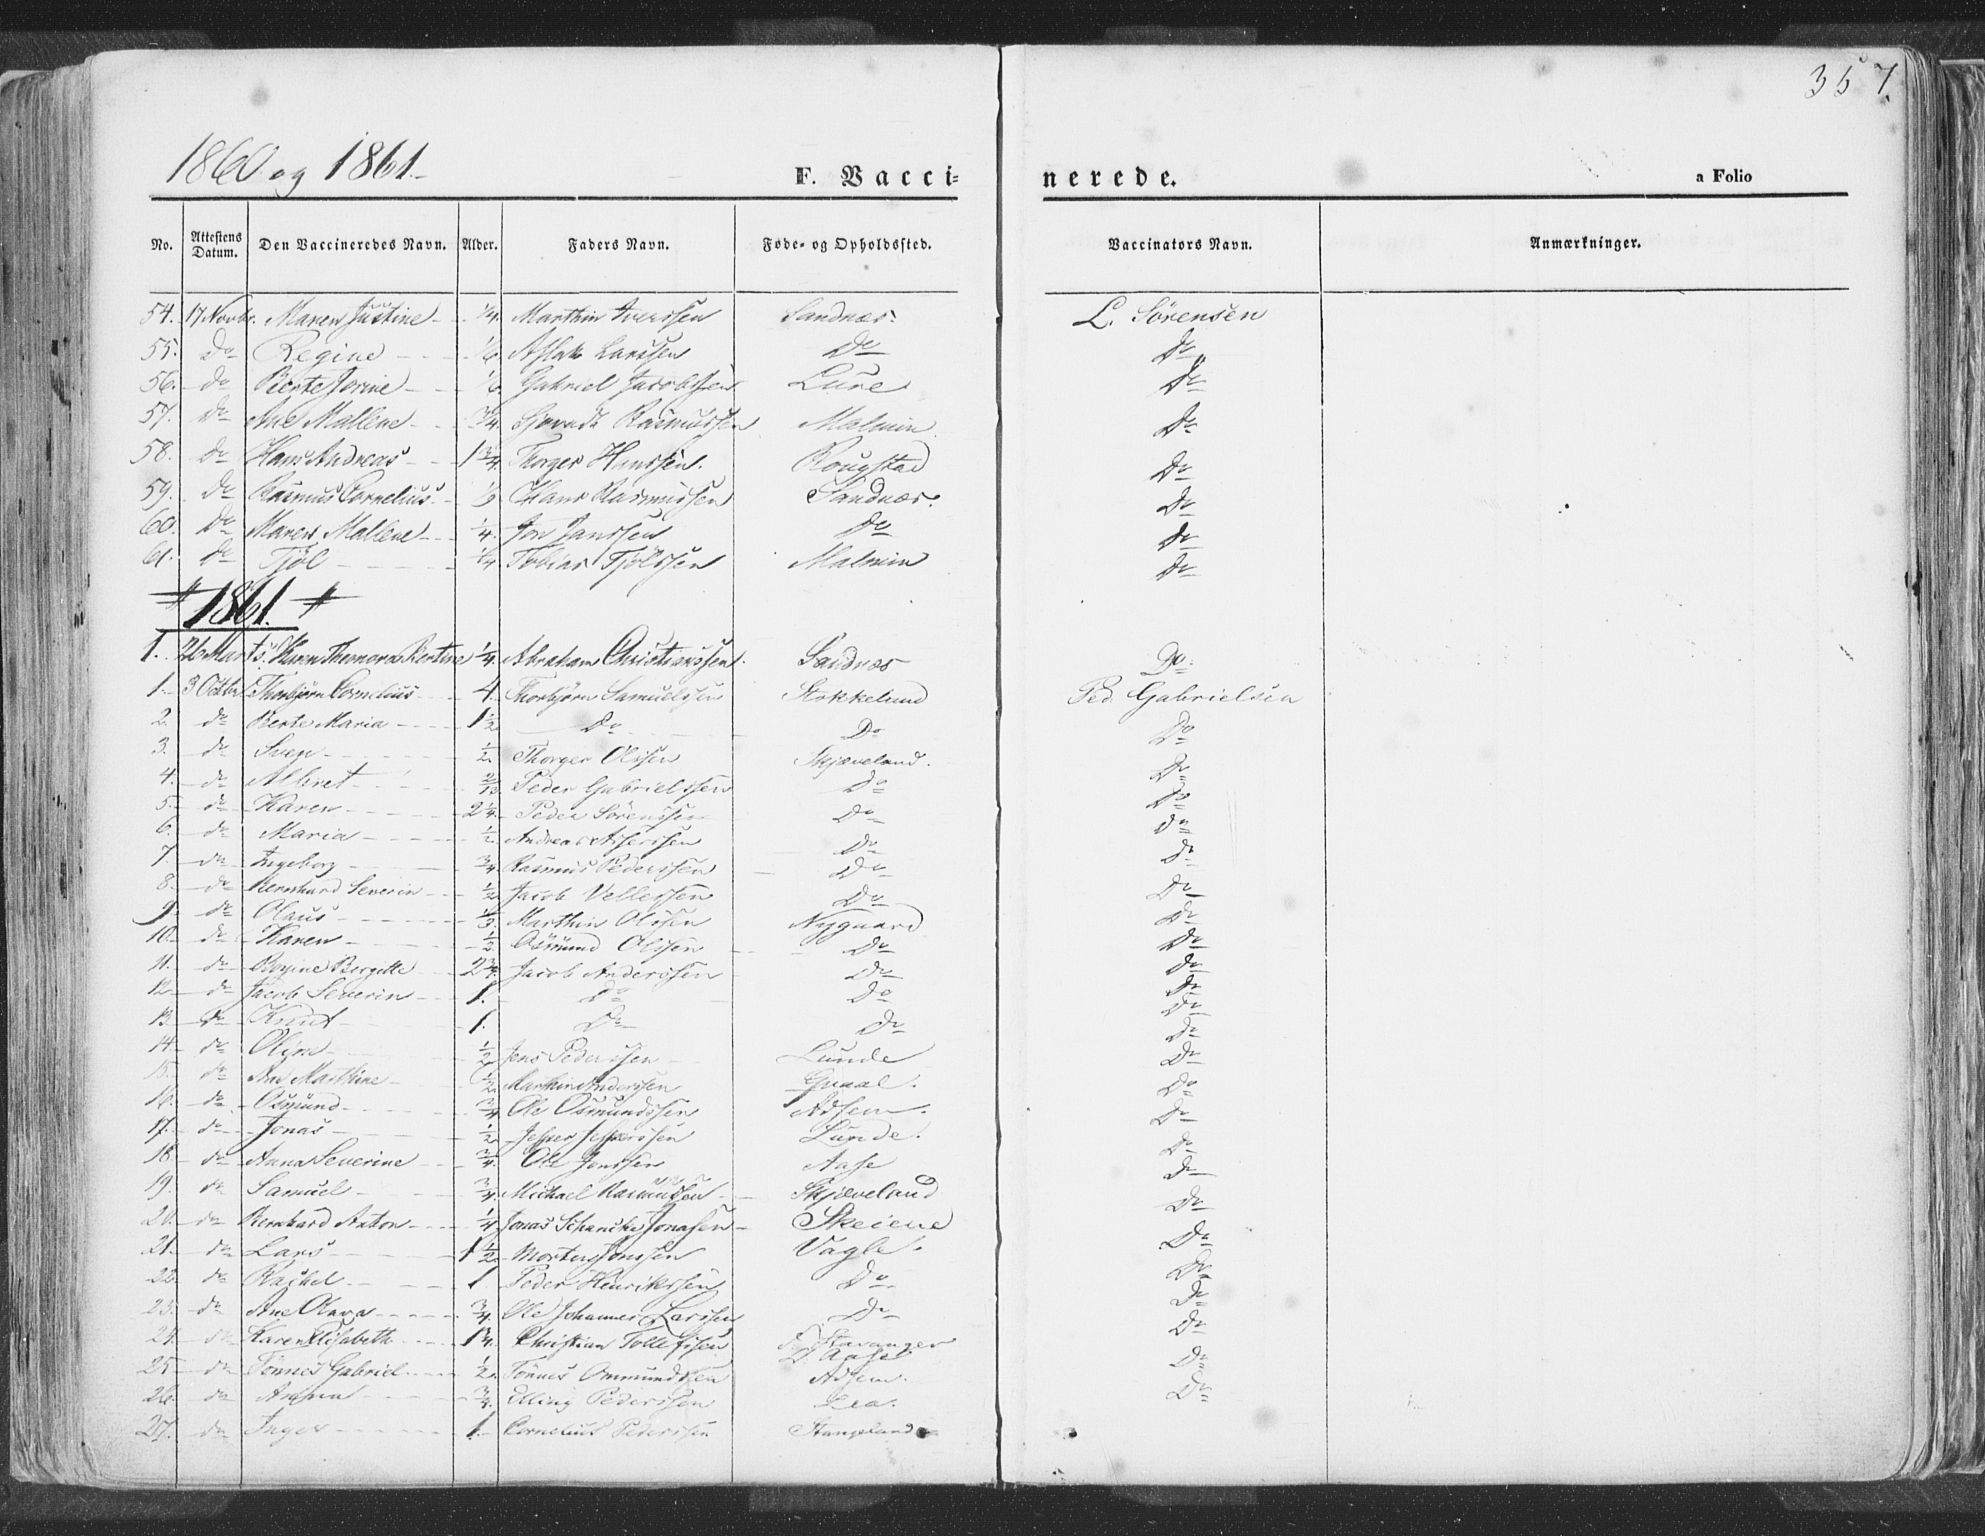 357.
1860 og 1861.
F. Vacci=nerede. a Folio
No. Attestens Datum. Den Vaccineredes Navn. Alder. Faders Navn. Føde- og Opholdssted. Vaccinators Navn. Anmærkninger.
54. 17 Novbr. Maren Justine 1/4 Marthin Iverssen Sandnæs. L. Sörensen
55. Do Regine 1/6 Aslak Larssen Do Do
56. do Berte Jorine 1/6 Gabriel Jacobssen Lure Do
57. Do Ane Mallene 3/4 Rasmussen Malmin Do
58. Do Hans Andreas 1 3/4 Thorger Hanssen. Rougstad Do
59. Do Rasmus Cornelius Hans Rasmussen Sandnæs. Do
60. Do Maren Mallene 1/4. Jon Janssen Do Do
61. do Tjöl 1/4 Tobias Tjölssen Malmin Do
1861.
1. 26 Marts. Karen Theonora Bertine 1/4 Abraham Christianssen. Sandnæs Do.
1. 3 Octbr. Thorbjørn Cornelius 4. Thorbjørn Samuelssen Stokkelund Ped. Gabrielsen
2. do Berte Maria 1 1/2 Do Do Do
3. do Sven 1/2 Thorger Olssen Skjæveland. Do
4. do Albret Peder Gabrielssen Do Do
5. do Karen 2 1/4 Peder Sörenssen Do Do
6. do Maria 1/2 Andreas Asserssen Do Do
7. do Ingeborg 3/4 Rasmus Pederssen Do Do
8. do Bernhard Severin 1/2 Jacob Vellessen Do Do
9. do Olaus Marthin Olssen Nygaard Do
10. do Karen 1/2 Osmund Olssen Do Do
11. do Regine Bergitte 2 3/4 Jacob Anderssen Do Do
12. do Jacob Severin 1. Do Do Do
13. do Knut 1. Do Do Do
14. do 1/2 Jens Pederssen Lunde Do
15. do Ane Marthine 1/2 Marthin Anderssen Graal. Do
16. do Osmund 3/4 Ole Osmundssen Adsem. Do
17. do Jonas 1/2 Jesper Jesperssen Lunde. Do
18. do Anna Severine 3/4 Ole Jonssen Aase Do
19. do Samuel 3/4 Michael Rasmussen Skjæveland Do
20. do Bernhard Anton 1/4 Jonas Schancke Jonassen Skeiene Do
21. do Lars 1 1/2 Morten Jonssen Vagle. Do
22. do Rachel 1 Peder Henrikssen Do Do
23. do Ane Olava 3/4 Ole Johannes Larssen Do Do
24. do Karen Elisabeth 1 1/4 Christian Tollefssen Stavanger Do
Aase
25. do Tönnes Gabriel 1/2 Tönnes Ommundssen Adsem. Do
26. do Anna 3/4 Elling Pederssen Lea. Do
27. do Inger 1. Cornelius Pederssen Stangeland